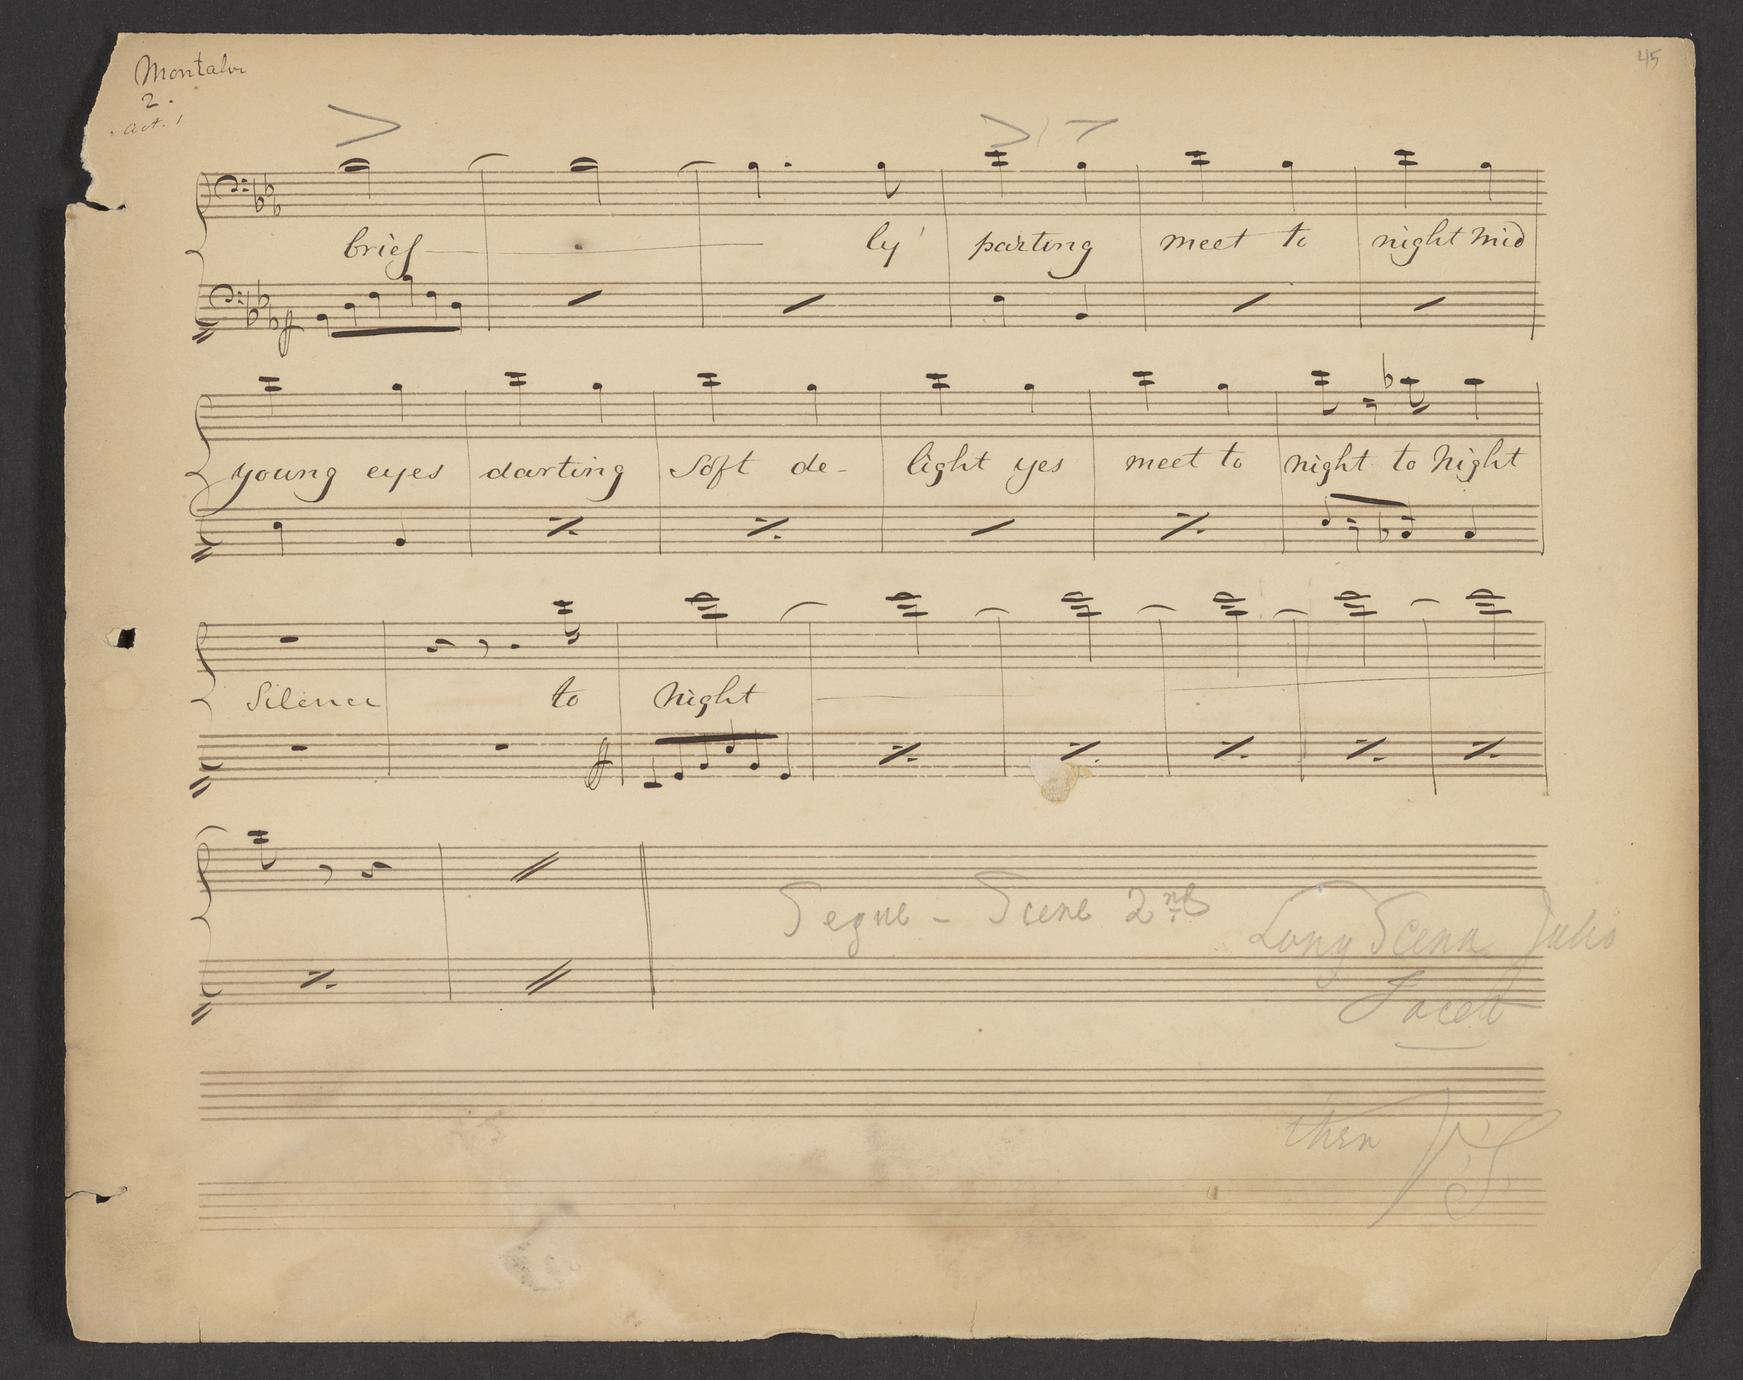 Montalvi
45
2.
Act. 1
brief ly' parting meet to night mid
f
young eyes darting Soft de- light yes meet to night to Night
Silence to Night
f
Segue - Scene 2nd
Long Scena
Tacet
then